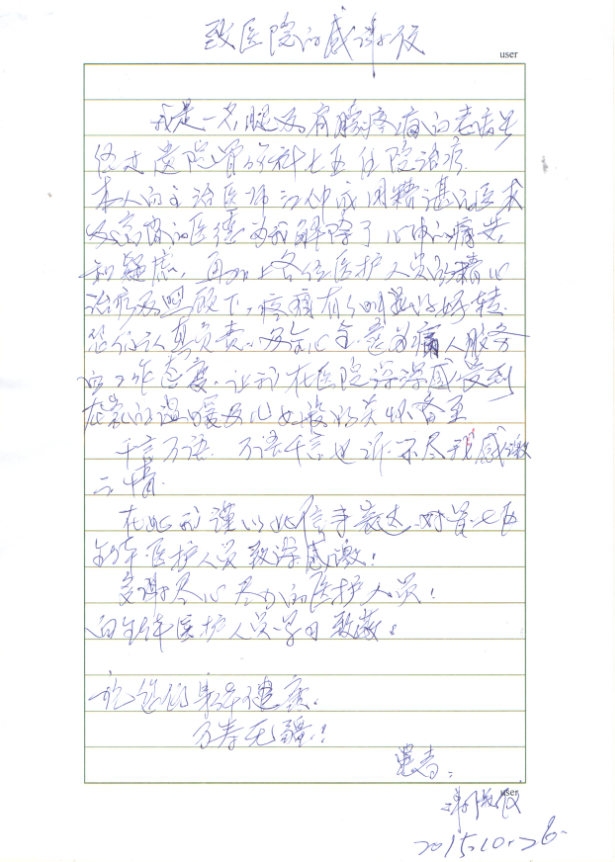 致医院的感谢信
user
我是一名腿及肩膀疼痛的老患者
经过贵院骨伤科七五住院治疗.
本人的主治医师江仲成用精湛的医术
及高尚的医德为我解除了心中的痛苦
和疑虑，再加上各位医护人员的精心
治疗及照顾下，疼痛有了明显的好转.
您们认真负责.及全心全意为病人服务
的工作态度.让我在医院深深感受到
在家的温暖及儿女般的关怀备至
千言万语.万语千言也诉不尽我感激
之情.
在此我谨以此信予表达.对骨七五
全体医护人员致深感激！
多谢尽心尽力的医护人员！
向全体医护人员学习致敬！
祝您们身体健康.
万寿无疆！
患者：
user
2015.10.26.